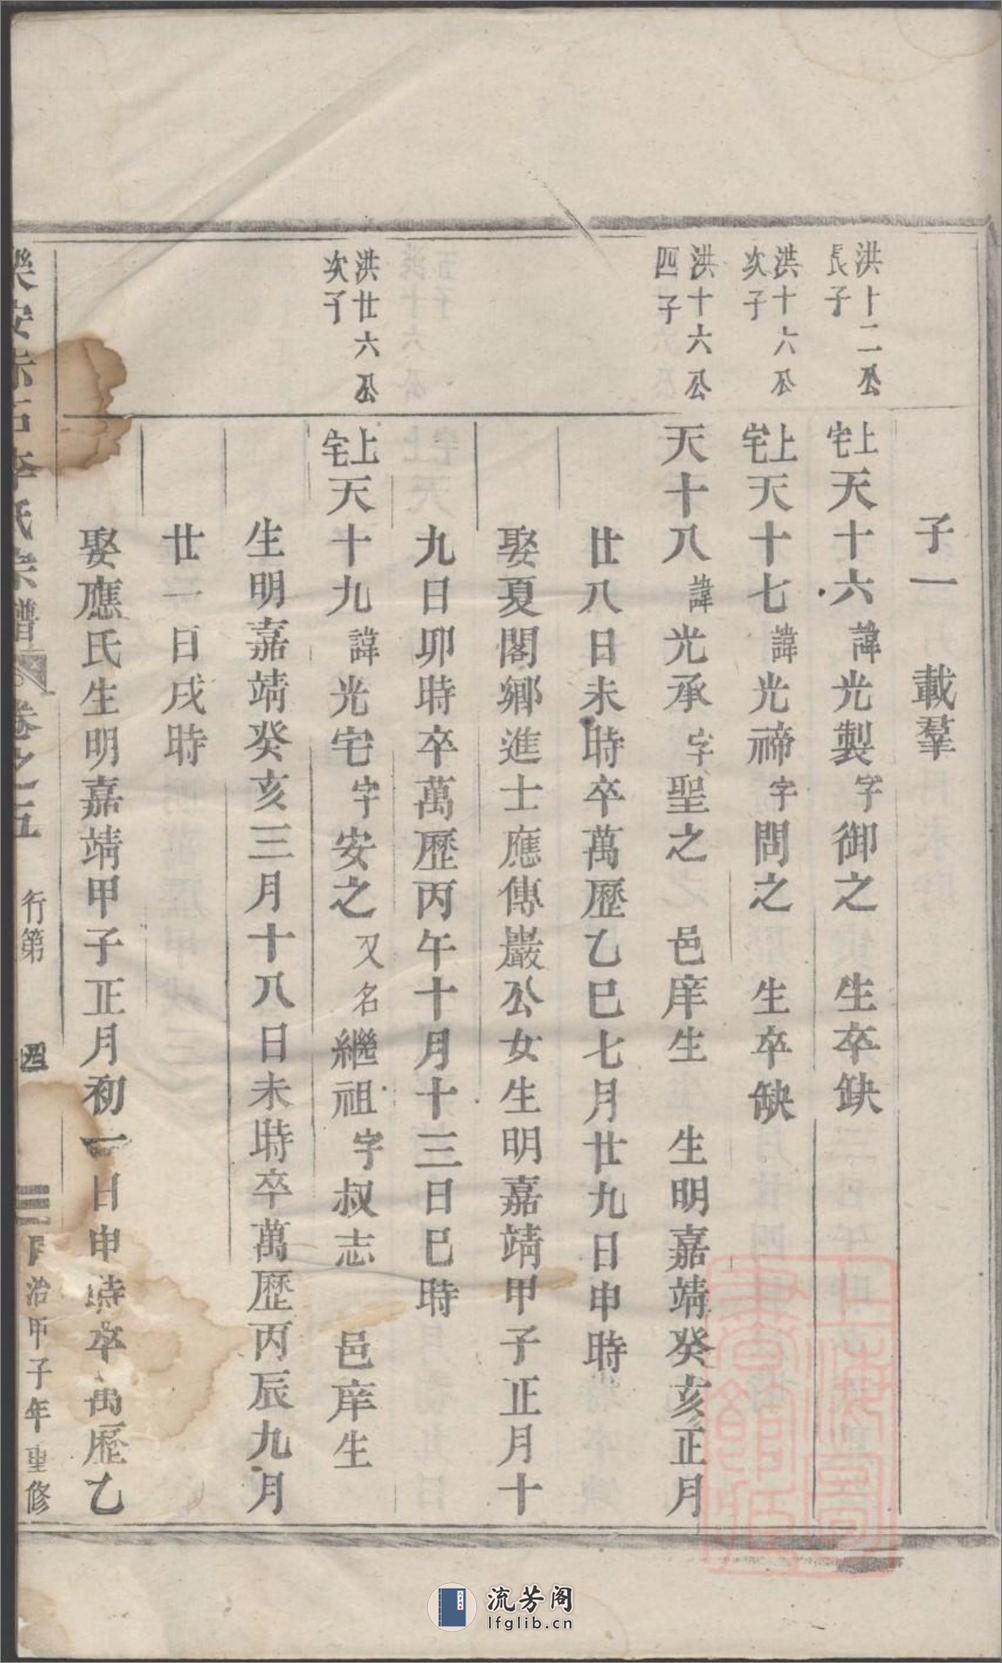 子一 載羣
洪十二公
長子
上宅天十六諱光製字御之 生卒缺
洪十六公
次子
上宅天十七諱光禘字問之 生卒缺
洪十六公
四子
天十八諱光承字聖之 邑庠生 生明嘉靖癸亥正月
廿八日未時卒萬歷乙巳七月廿九日申時
娶夏閣鄉進士應傳巖公女生明嘉靖甲子正月十
九日卯時卒萬歷丙午十月十三日巳時
洪廿六公
次子
上宅天十九諱光宅字安之又名繼祖字叔志 邑庠生
生明嘉靖癸亥三月十八日未時卒萬歷丙辰九月
廿一日戌時
娶應氏生明嘉靖甲子正月初一日申時卒萬歷乙
樂安 石李氏宗譜 卷之五 行第 四 同治甲子年重修
上海圖書館藏
流芳阁
lfglib.cn